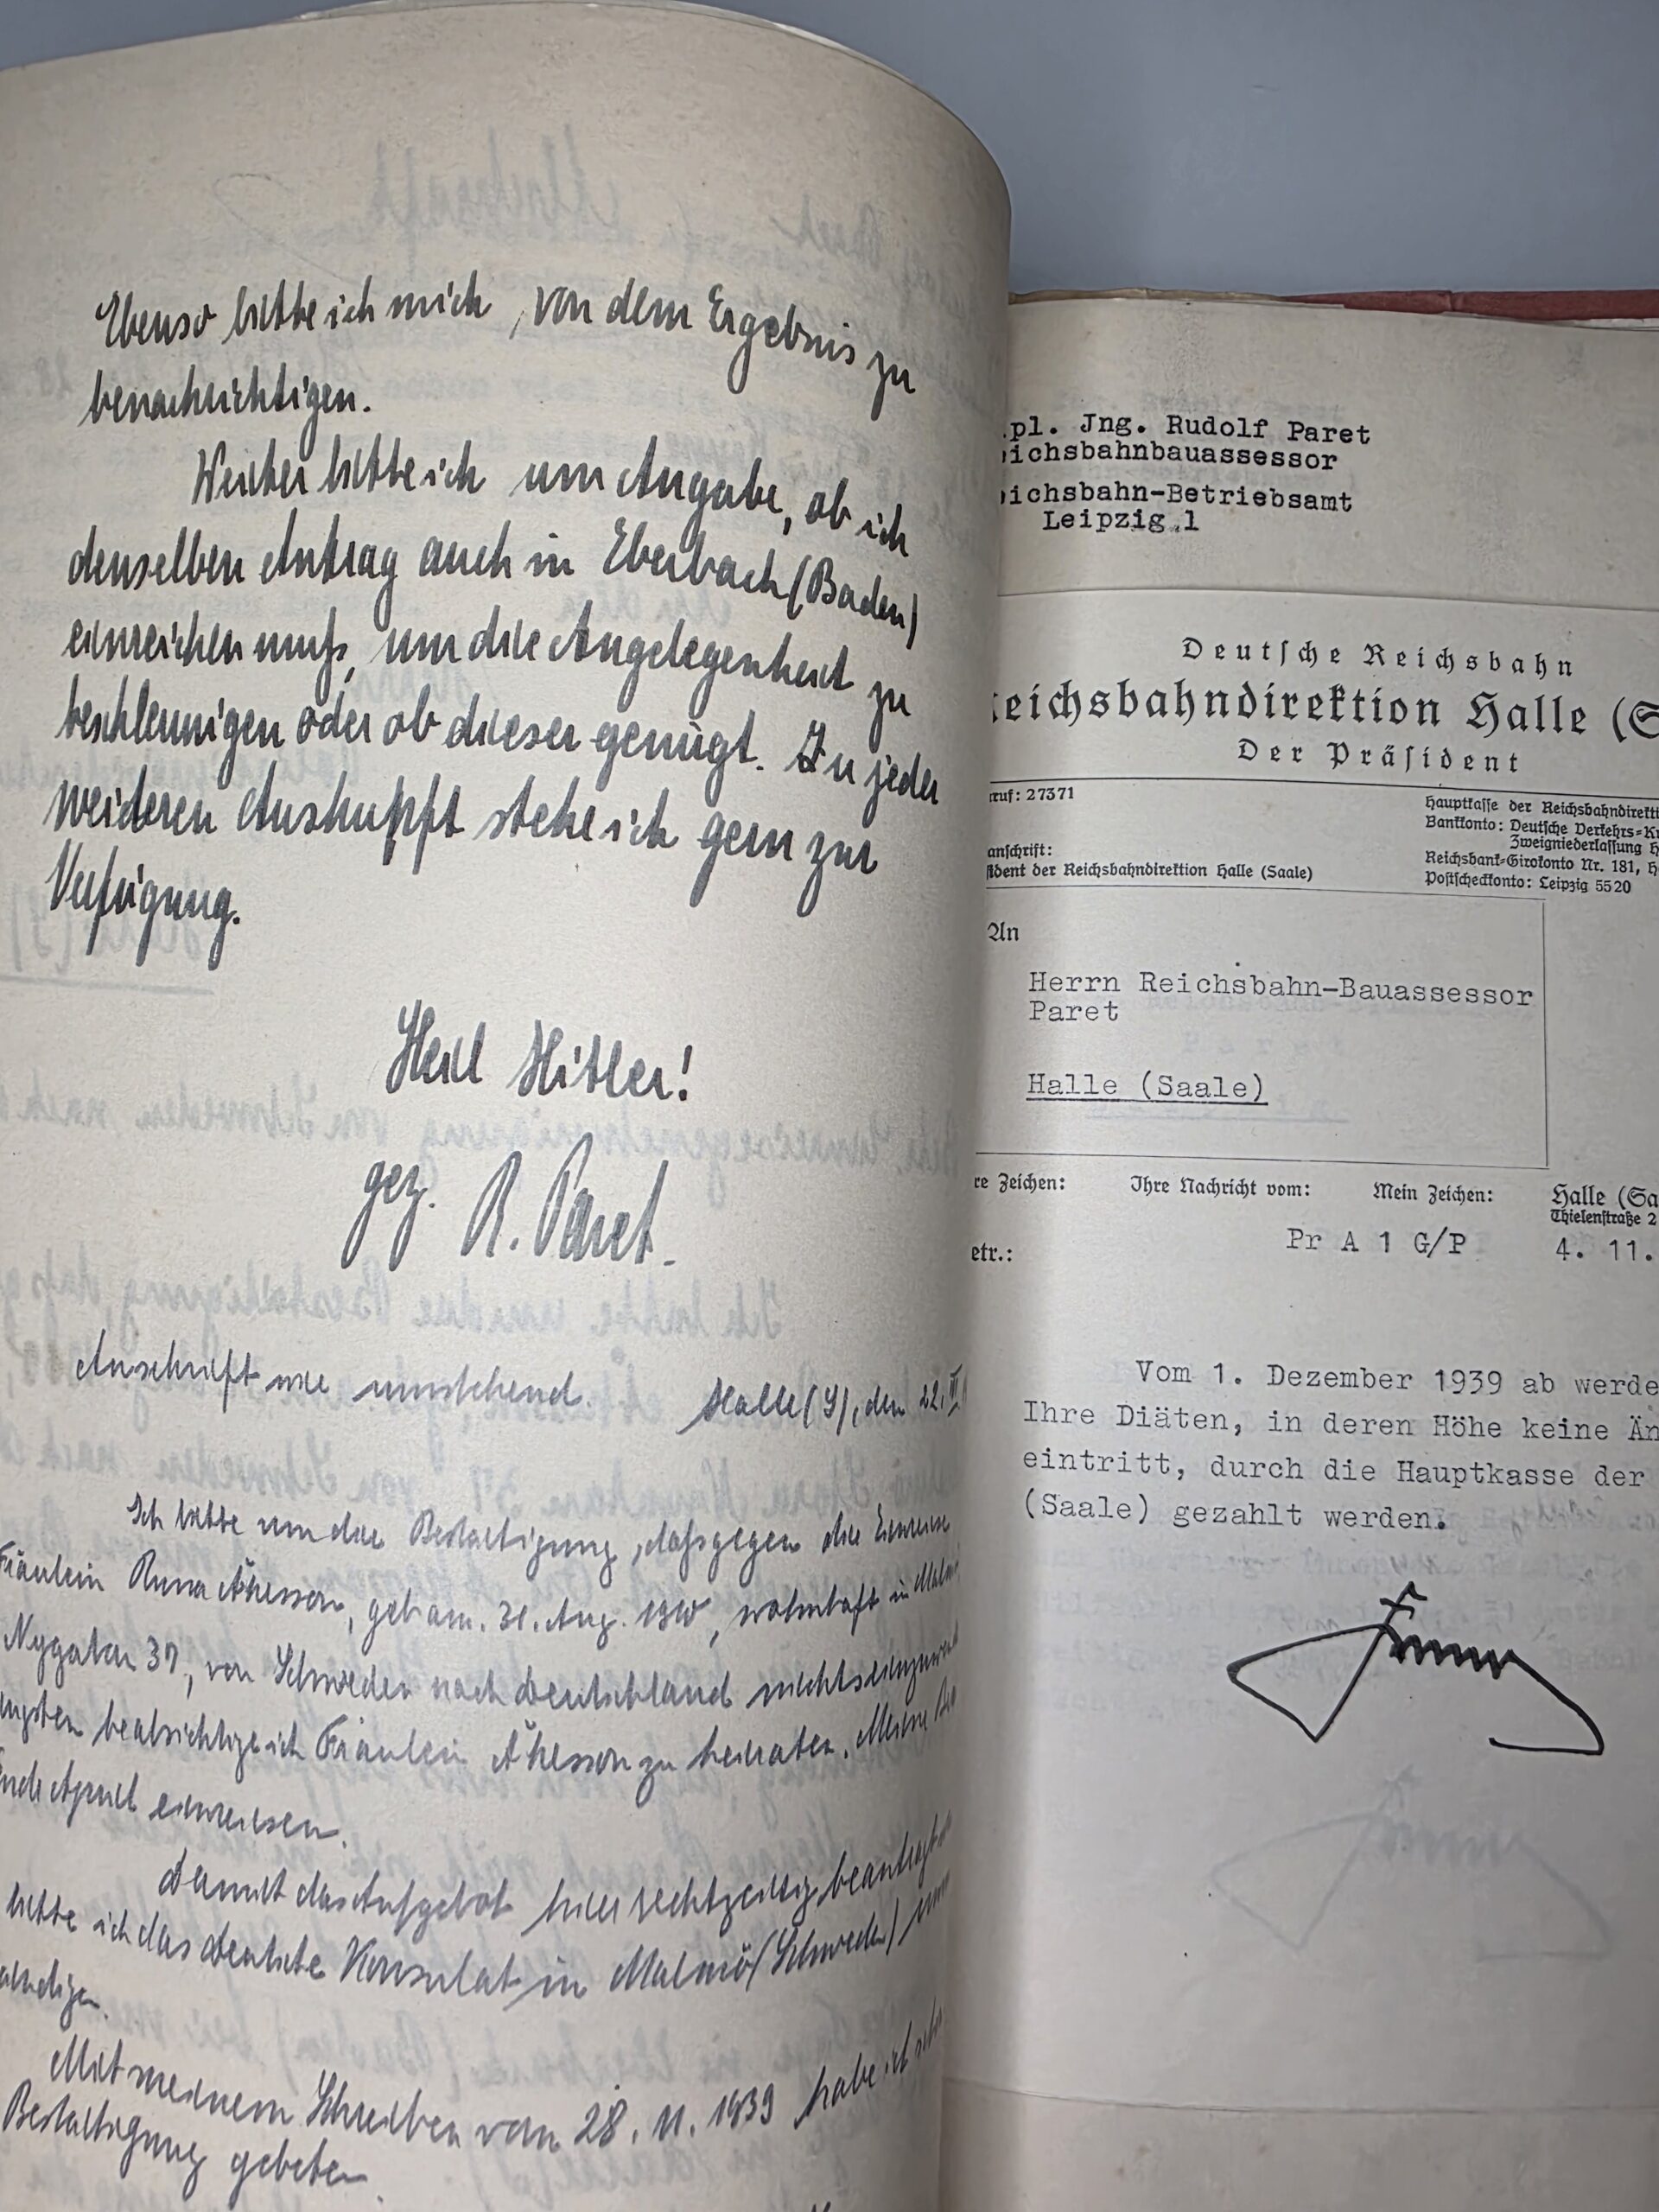 Ebenso bitte ich mich, von dem Ergebnis zu
benachrichtigen.
Weiter bitte ich um Angabe, ob ich
denselben Antrag auch in Eberbach (Baden)
einreichen muß, um die Angelegenheit zu
beschleunigen oder ob dieser genügt. Zu jeder
weiteren Auskunft stehe ich gern zur
Verfügung.
Heil Hitler!
gez. R. Paret.
Anschrift wie umstehend.
Halle (S), den 22.
Ich bitte um die Bestätigung, daß gegen die Einreise
Fräulein Runa Åkesson, geb. am. 31. Aug. 1910, wohnhaft in Malmö
Nygatan 37, von Schweden nach Deutschland nichts einzuwend
beabsichtige ich Fräulein Åkesson zu heiraten. Meine
Ende April einreisen.
Damit das Aufgebot hier rechtzeitig beantragt
bitte ich das deutsche Konsulat in Malmö (Schweden)
Mit meinem Schreiben vom 28. 11. 1939 habe ich
Bestätigung gebeten
pl. Jng. Rudolf Paret
eichsbahnbauassessor
eichsbahn-Betriebsamt
Leipzig 1
Deutsche Reichsbahn
eichsbahndirektion Halle (S
Der Präsident
ruf: 27371
Hauptkasse der Reichsbahndirekti
Bankkonto: Deutsche Verkehrs-Kr
Zweigniederlassung H
anschrift:
Reichsbank-Girokonto Nr. 181, H
sident der Reichsbahndirektion Halle (Saale)
Postscheckkonto: Leipzig 5520
An
Herrn Reichsbahn-Bauassessor
Paret
Halle (Saale)
re Zeichen: Ihre Nachricht vom: Mein Zeichen: Halle (Sa
Thielenstraße 2
Pr A 1 G/P 4. 11.
etr.:
Vom 1. Dezember 1939 ab werde
Ihre Diäten, in deren Höhe keine Än
eintritt, durch die Hauptkasse der
(Saale) gezahlt werden.